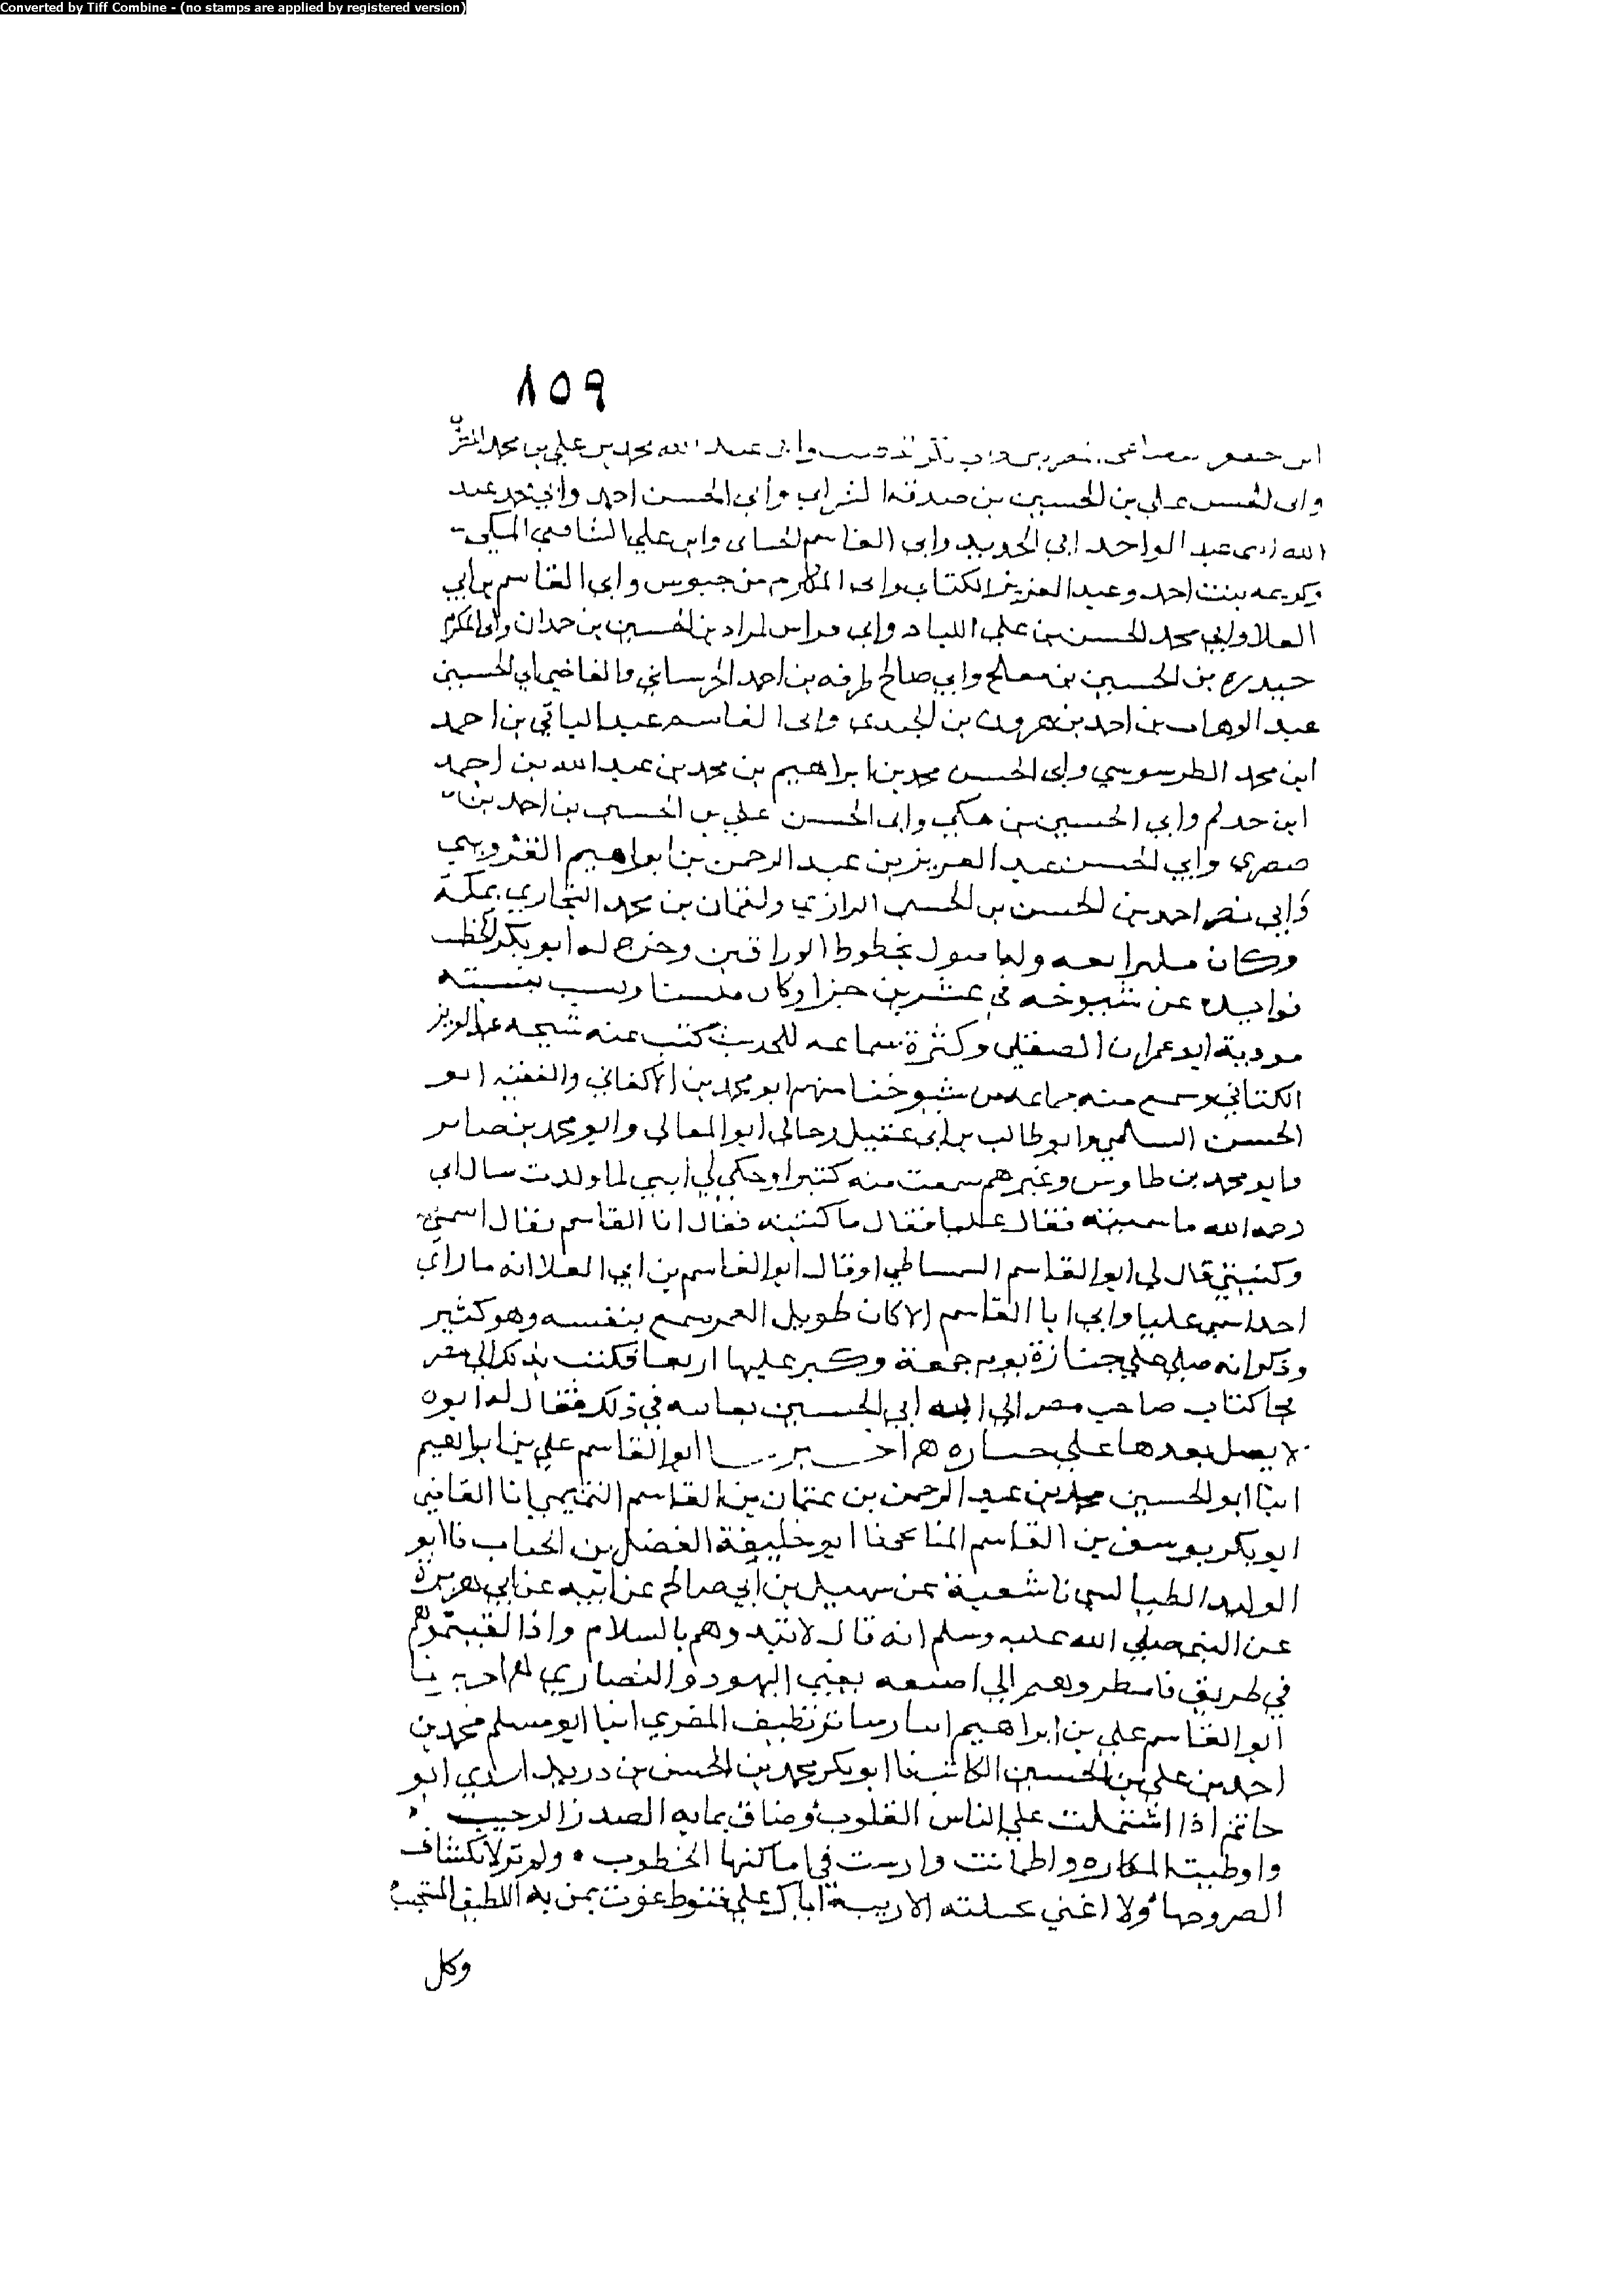 Converted by Tiff Combine - (no stamps are applied by registered version)
٨٥٩
وابى عبد الله محمد بن علي بن محمد
علي بن الحسين بن صدقه الشرابي وأبي الحسن احمد وابي محمد عبد
الله عبد الواحد ابي الحديد وابى القاسم وابى علي الشافعي المكي
وكريمه بنت احمد وعبد العزيز الكتاب وابى المكارم بن حيوس وابى القاسم بن ابي
العلا وابي محمد الحسن بن علي اللباد وابي بن الحسين بن حمدان وابى المكرم
حيدره بن الحسين بن مفلح وابي صالح طرفه بن احمد الحرستاني والقاضي ابي الحسين
عبد الوهاب بن احمد بن هرون بن الجندى وابى القاسم عبد الباقي بن احمد
ابن محمد الطرسوسي وابى الحسن محمد بن ابراهيم بن محمد بن عبد الله بن احمد
ابن حدلم وابي الحسين بن مكي وابى الحسن علي بن الحسين بن احمد بن
صصرى وابي الحسن عبد العزيز بن عبد الرحمن بن ابراهيم القزويني
وابي نصر احمد بن الحسن بن الحسين الرازي ولقمان بن محمد البخاري بمكة
وكان وله اصول بخطوط الوراقين وخرج له ابو بكر الخطيب
فوايده عن شيوخه في عشرين جزا وكان
مودبه ابو عمران الصقلي وكثرة سماعه للحديث كتب عنه شيخه عبد العزيز
الكتاني وسمع منه جماعه من شيوخنا منهم ابو محمد بن الاكفاني والفقيه ابو
الحسن السلمي وابو طالب بن ابى عقيل وخالي ابو المعالي وابو محمد بن صابر
وابو محمد بن طاوس وغيرهم سمعت منه كثيرا وحكي لي ابي لما ولدت سال ابي
رحمه الله ما سميته فقال عليا فقال ما كنيته فقال ابا القاسم فقال اسمي
وكنيتي قال لي ابو القاسم السمساطي او قال ابو القاسم بن ابي العلا انه ما راى
احدا سمي عليا وابي ابا القاسم الا كان طويل العمر سمع بنفسه وهو كثير
وذكر انه صلي علي جنازة يوم جمعة وكبر عليها اربعا فكتب بذلك الى مصر
فجا كتاب صاحب مصر الى ابيه ابي الحسين يعاتبه في ذلك فقال له ابوه
لا يصل بعدها علي جنازه ابو القاسم علي بن ابراهيم
انبا ابو الحسين محمد بن عبد الرحمن بن عثمان بن القاسم التميمي انا القاضي
ابو بكر يوسف بن القاسم الميانجى نا ابو خليفة الفضل بن الحباب نا ابو
الوليد الطيالسي نا شعبة عن سهيل بن ابي صالح عن ابيه عن ابي هريرة
عن النبي صلى الله عليه وسلم انه قال لا تبدوهم بالسلام واذا لقيتموهم
في طريق فاضطروهم الي اضيقه يعني اليهود والنصاري
ابو القاسم علي بن ابراهيم انبا رشا بن نظيف المقري انبا ابو مسلم محمد بن
احمد بن علي بن الحسين الكاتب نا ابو بكر محمد بن الحسن بن دريد ابو
حاتم اذا اشتملت علي الناس القلوب وضاق بما به الصدر الرحيب
واوطيت المكاره واطمانت وارست في اماكنها الخطوب ولم تر لانكشاف
الضر وجها ولا اغني بحيلته الاريب اتاك علي قنوط غوث يمن به اللطيف المستجيب
وكل